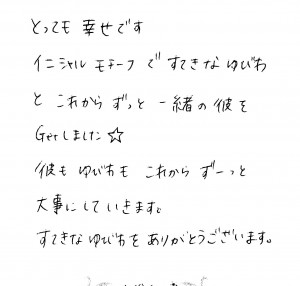 とっても 幸せです
イニシャル モチーフ で すてきな ゆびわ
と これから ずっと 一緒の 彼を
Getしました☆
彼も ゆびわも これから ずーっと
大事にしていきます。
すてきな ゆびわを ありがとうございます。